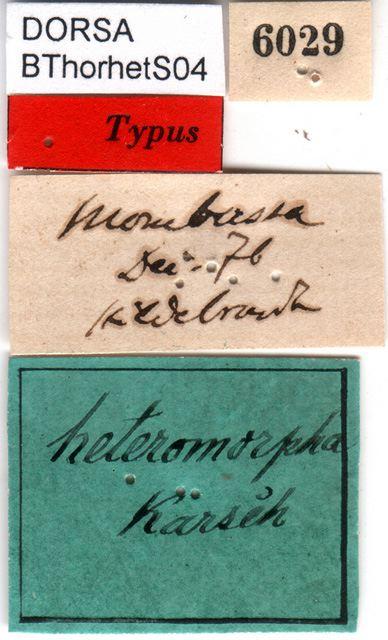 DORSA
BThorhetS04
6029
Typus
Mombassa
Dec. 76
Hildebrandt
heteromorpha
Karsch